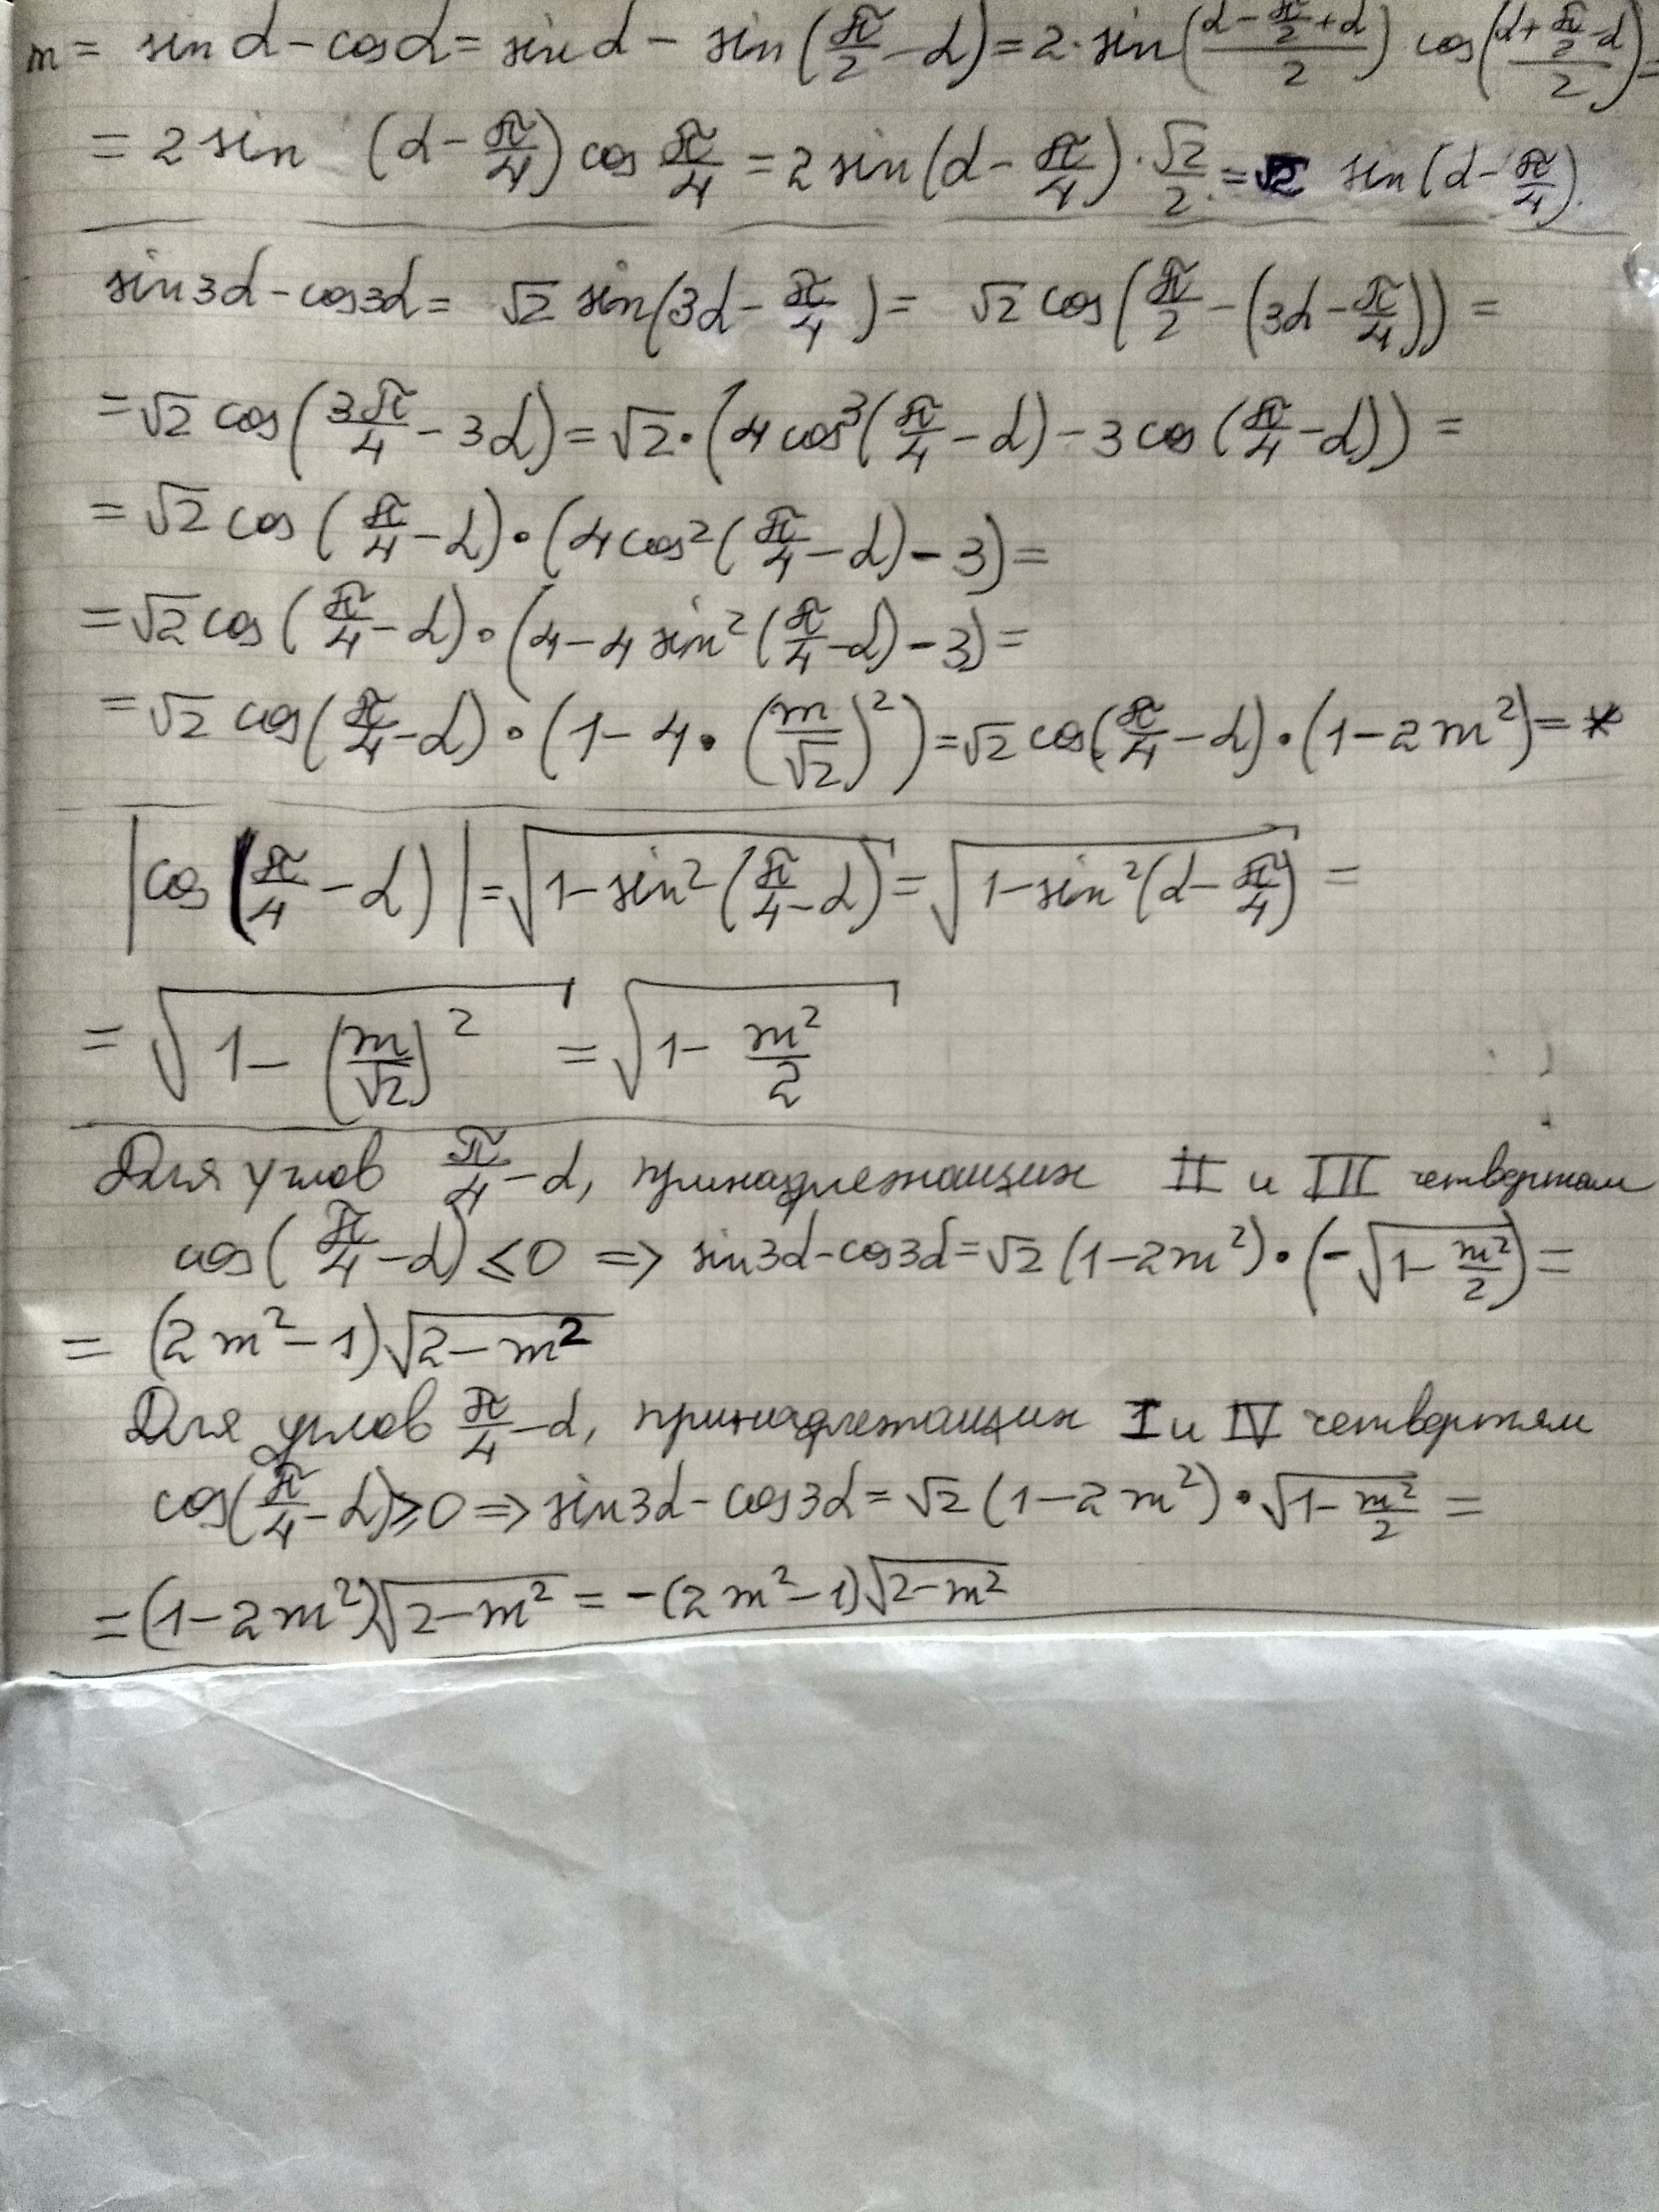 m = sin α − cos α = sin α − sin(π/2 − α) = 2·sin((α − π/2 + α)/2) cos((α + π/2 − α)/2) =
= 2 sin (α − π/4) cos π/4 = 2 sin(α − π/4)·√2/2 = √2 sin(α − π/4).
sin3α − cos3α = √2 sin(3α − π/4) = √2 cos(π/2 − (3α − π/4)) =
= √2 cos(3π/4 − 3α) = √2·(4cos³(π/4 − α) − 3cos(π/4 − α)) =
= √2 cos(π/4 − α)·(4cos²(π/4 − α) − 3) =
= √2 cos(π/4 − α)·(4 − 4 sin²(π/4 − α) − 3) =
= √2 cos(π/4 − α)·(1 − 4·(m/√2)²) = √2 cos(π/4 − α)·(1 − 2m²) = *
|cos(π/4 − α)| = √(1 − sin²(π/4 − α)) = √(1 − sin²(α − π/4)) =
= √(1 − (m/√2)²) = √(1 − m²/2)
Для углов π/4 − α, принадлежащих II и III четвертям
cos(π/4 − α) ≤ 0 => sin3α − cos3α = √2 (1 − 2m²)·(−√(1 − m²/2)) =
= (2m² − 1)√(2 − m²)
Для углов π/4 − α, принадлежащих I и IV четвертям
cos(π/4 − α) ≥ 0 => sin3α − cos3α = √2 (1 − 2m²)·√(1 − m²/2) =
= (1 − 2m²)√(2 − m²) = −(2m² − 1)√(2 − m²)